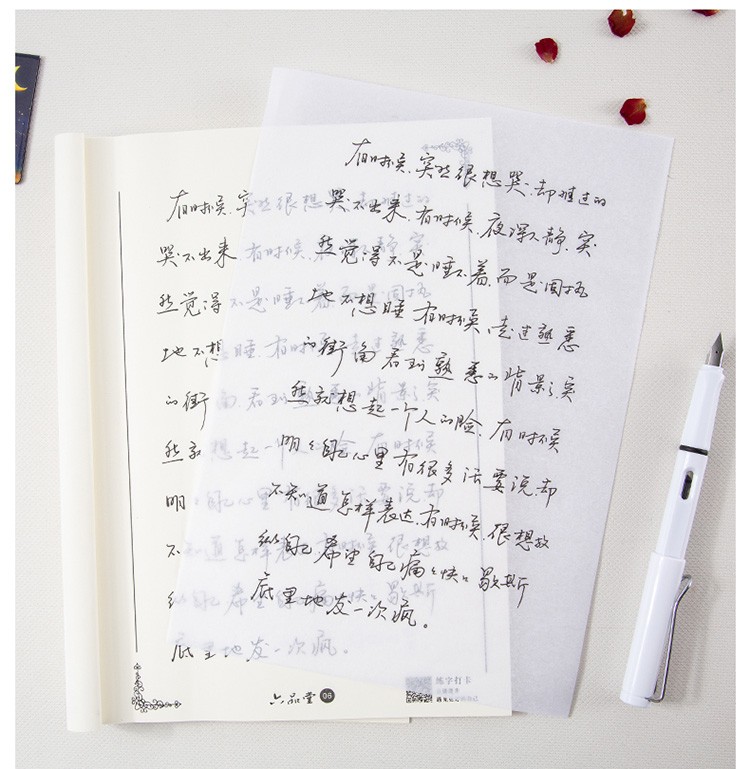 有时候，突然很想哭，却难过的
哭不出来，有时候，夜深人静，突
然觉得不是睡不着，而是固执
地不想睡，有时候，走过熟悉
的街角看到熟悉的背影，突
然就想起一个人的脸，有时候
明明自己心里有很多话要说，却
不知道怎样表达，有时候，很想放
纵自己，希望自己痛痛快快歇斯
底里地发一次疯。
有时候，突然很想哭，却难过的
哭不出来，有时候，夜深人静，突
然觉得不是睡不着，而是固执
地不想睡，有时候，走过熟悉
的街角看到熟悉的背影，突
然就想起一个人的脸，有时候
明明自己心里有很多话要说，却
不知道怎样表达，有时候，很想放
纵自己，希望自己痛痛快快歇斯
底里地发一次疯。
六品堂 06
练字打卡